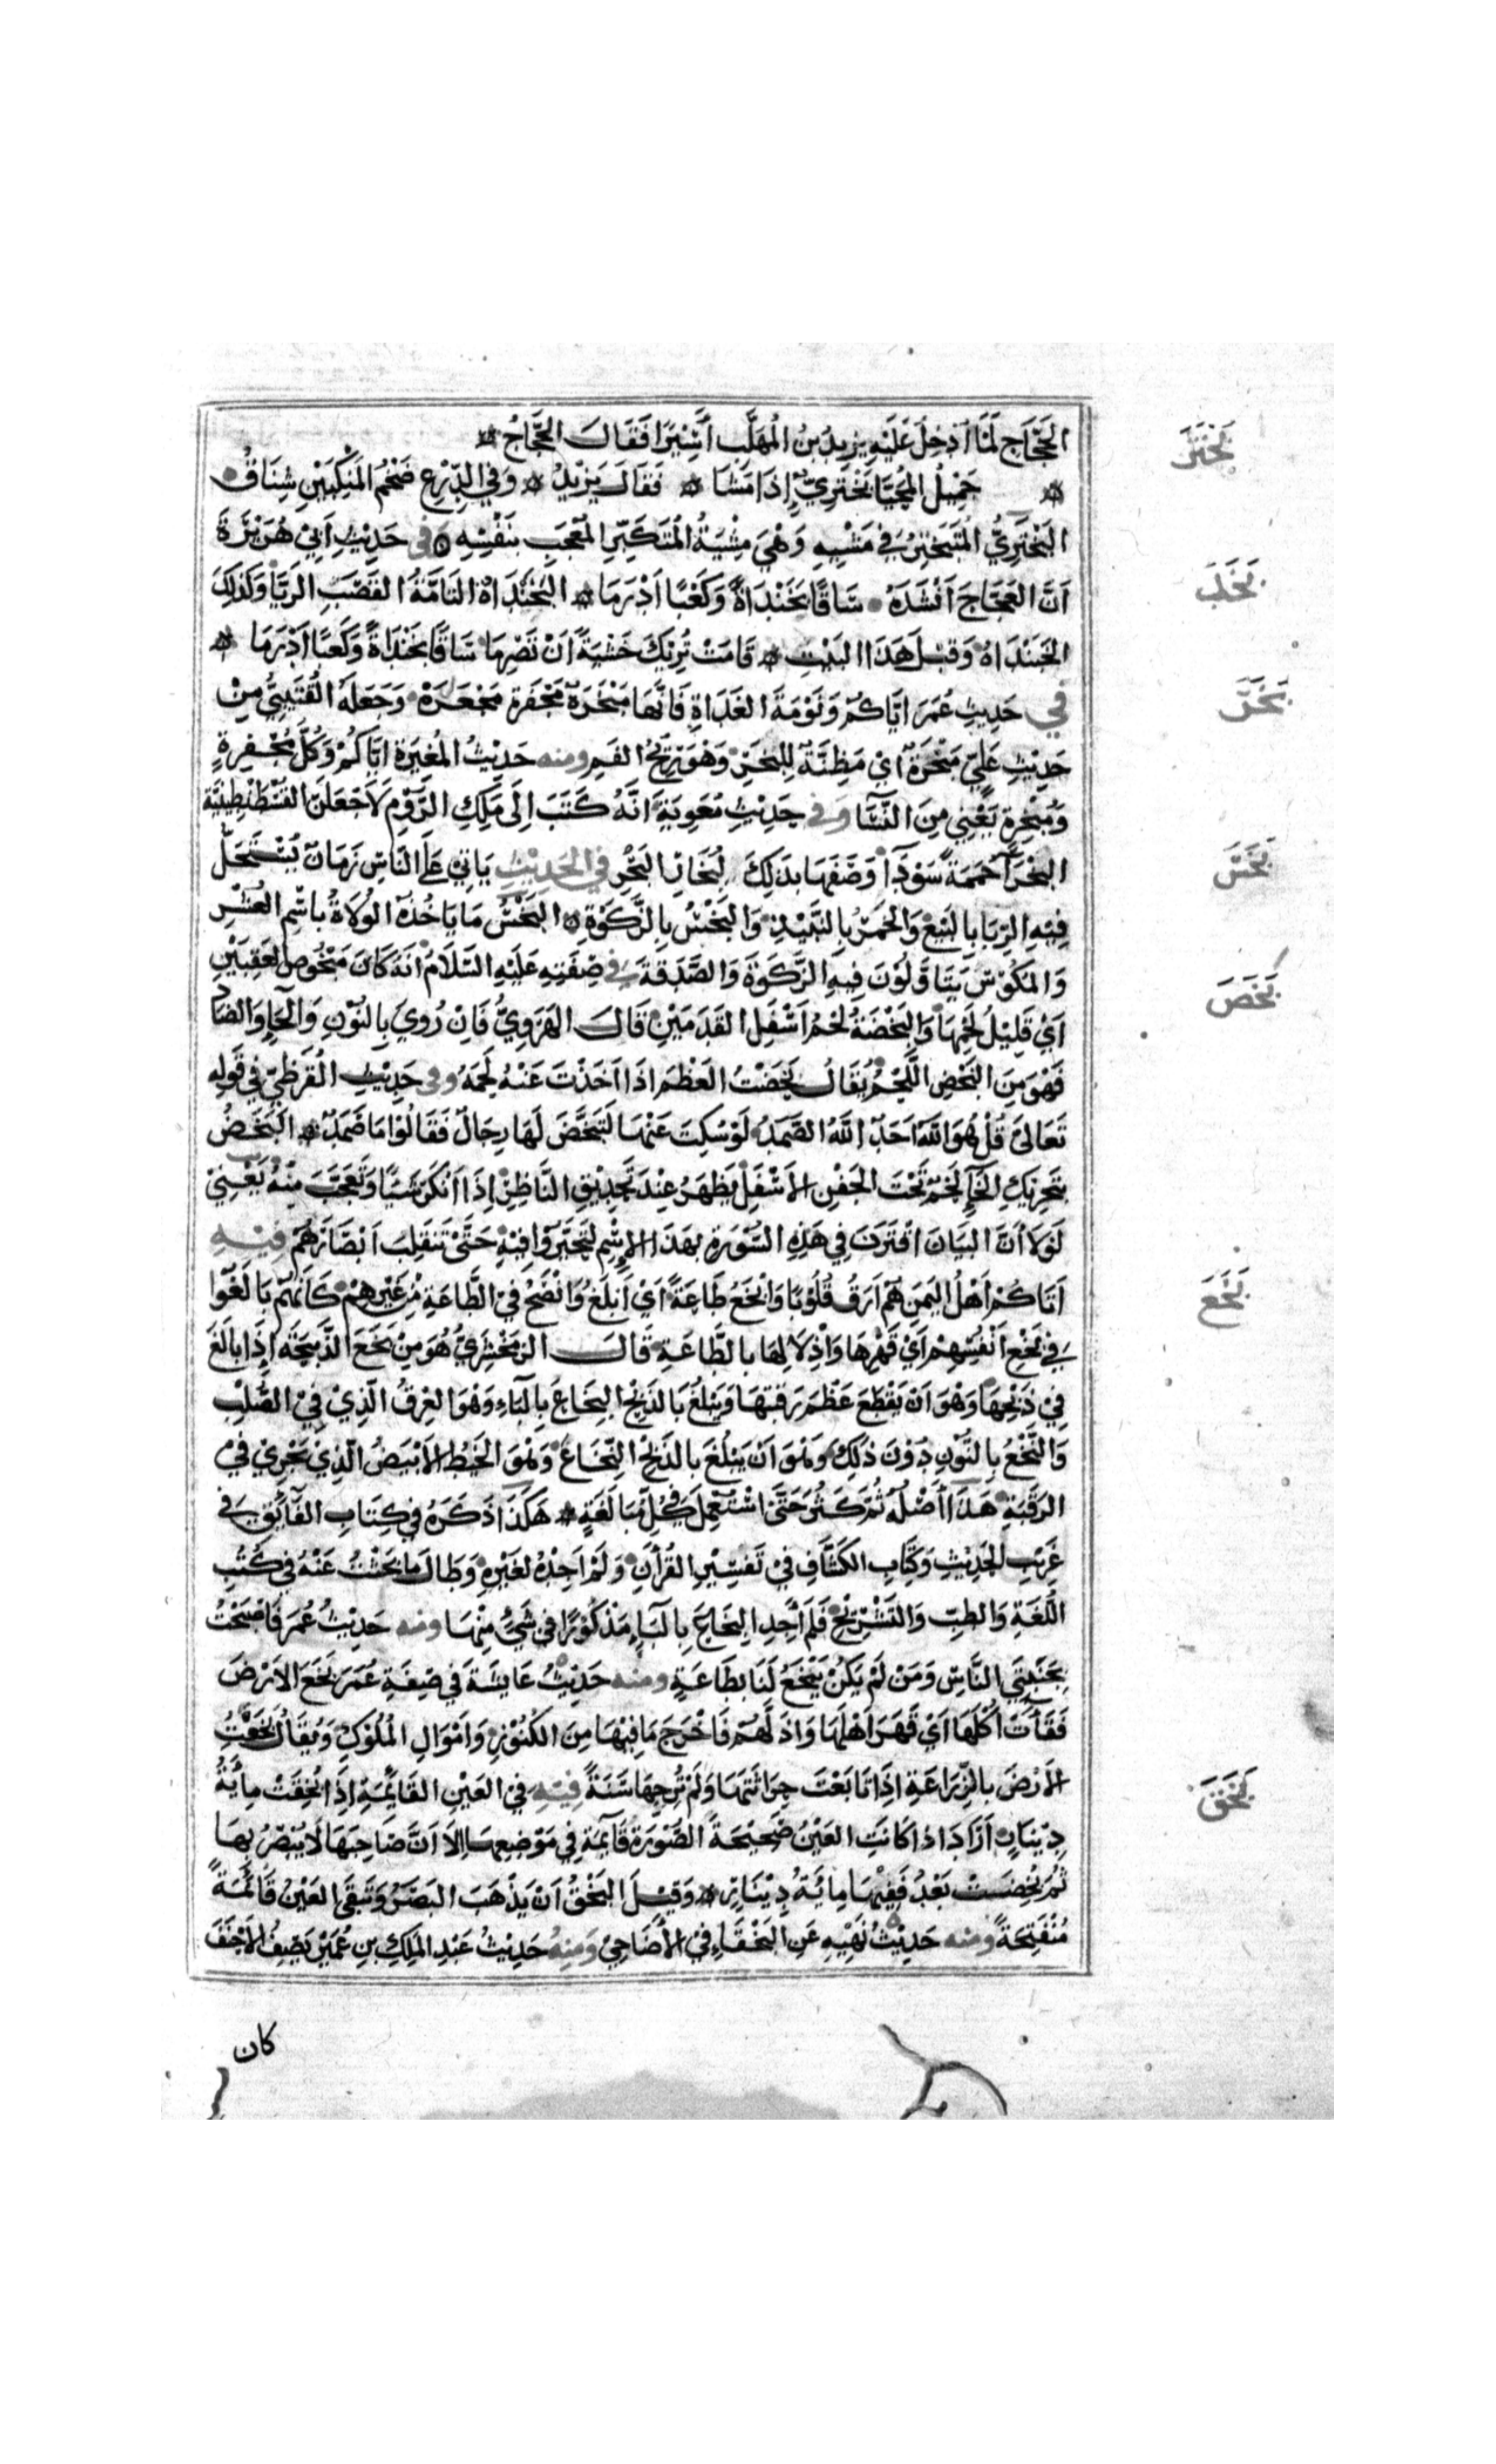 الحَجَّاج لَمَّا اُدْخِلَ عَلَيْهِ يَزِيدُ بنُ المُهَلَّب أَسِيْرًا فَقَالَ الحَجَّاجُ
بَخْتَرَ
جَمِيْلُ المُحَيَّا بَخْتَرِيٌّ إِذَا مَشَا فَقَالَ يَزِيْدُ وَفِي الدِّرْعِ ضَخْمُ المَنْكِبَيْنِ شِنَاقُ
البَخْتَرِيُّ المُتَبَخْتِرُ فِي مَشْيِهِ وَهْيَ مِشْيَةُ المُتَكَبِّرِ المُعْجَبِ بِنَفْسِهِ وفى حَدِيْثِ اَبِيْ هُرَيْرَةَ
اَنَّ العَجَّاجَ اَنْشَدَهُ سَاقًا بَخَنْدَاةً وَكَعْبًا اَدْرَمَا البَخَنْدَاةُ التَامَّةُ القَصَبِ الرَيَّا وَكَذلِكَ
الخَبَنْدَاةُ وَقَبْلَ هَذَا البَيْتِ قَامَتْ تُرِيْكَ خَشْيَةً اَنْ تَصْرِمَا سَاقًا بَخَنْدَاةً وَكَعْبًا اَدْرَمَا
بَخَرَ
في حَدِيثِ عُمَرَ ايَّاكُمْ وَنَوْمَةَ الغَدَاةِ فَاِنَّهَا مَبْخَرَةٌ مَجْفَرَةٌ مَجْعَرَةٌ وَجَعَلَهُ القُتَيْبِيُّ مِنْ
حَدِيْثِ عَلِيٍّ مَبْخَرَةٌ اَيْ مَظِنَّةٌ لِلبَخَرِ وَهْوَ رِيْحُ الفَمِ ومنه حَدِيْثُ المُغِيْرَةِ ايَّاكُمْ وَكُلَّ مُجْفِرَةٍ
وَمُبْخِرَةٍ يَعْنِي مِنَ النِّسَّا وَفي حَدِيْثِ مُعٰوِيَةَ اَنَّهُ كَتَبَ اِلَى مَلِكِ الرُّوْمِ لَاَجْعَلَنَّ القُسْطَنْطِيْنِيَّةَ
بَخَسَ
البَخْرَآءَ حُمَمَةً سَوْدَآءَ وَصَفَهَا بِذَلِكَ لِبُخَارِ البَحْرِ في الحَدِيْثِ يَاتِيْ عَلَى النَاسِ زَمَانٌ يُسْتَحَلُّ
فِيْهِ الرِّبَا بِالبَيْعِ وَالخَمْرُ بِالنَبِيْذِ وَالبَخْسُ بِالزَّكٰوةِ البَخْسُ مَا يَاخُذُهُ الوُلَاةُ بِاسْمِ العُشْرِ
بَخَصَ
وَالمُكُوْسِ يَتَاَوَّلُوْنَ فِيهِ الزَّكٰوةَ وَالصَّدَقَةَ في صِفَتِهِ عَلَيْهِ السَّلَامُ اَنَّهُ كَانَ مَبْخُوصَ العَقِبَيْنِ
اَيْ قَلِيْلُ لَحْمِهَا وَالبَخْصَةُ لَحْمُ اَسْفَلِ القَدَمَيْنِ قَالَ الهَرَوِيُّ فَاِنْ رُوِيَ بِالنُوْنِ وَالحَآءِ وَالضَادِ
فَهْوَ مِنَ النَحْضِ اللَّحْمُ يُقَالُ نَحَضْتُ العَظْمَ اذَا اَخَذْتَ عَنْهُ لَحْمَهُ وفى حَدِيْثِ القُرَظِيِّ فِي قَوْلِهِ
تَعَالىَ قُلْ هُوَ اللهُ اَحَدٌ اللهُ الصَّمَدُ لَوْ سُكِتَ عَنْهَا لَتَبَخَّصَ لَهَا رِجَالٌ فَقَالُوْا مَا صَمَدٌ البَخَصُ
بِتَحْرِيْكِ الخَآءِ لَحْمٌ تَحْتَ الجَفْنِ الاَسْفَلِ يَظْهَرُ عِنْدَ تَحْدِيْقِ النَّاظِرِ إِذَا اَنْكَرَ شَيْئًا وَتَعَجَّبَ مِنْهُ يَعْنِيْ
لَوْلَا اَنَّ البَيَانَ اقْتَرَنَ فِي هَذِهِ السُّوْرَةِ بِهَذَا الاِسْمِ لَتَحَيَّرُوْا فِيْهِ حَتَّى تَنْقَلِبُ اَبْصَارُهُمْ فِيْهِ
بَخَعَ
اَتَاكُمْ اَهْلُ اليَمَنِ هُمْ اَرَقُّ قُلُوْبًا وَابْخَعُ طَاعَةً اَيْ اَبْلَغُ وَانْصَحُ فِي الطَّاعَةِ مِنْ غَيْرِهِمْ كَاَنَّهُمْ بَالَغُوْا
فِي بَخْعِ اَنْفُسِهِمْ اَيْ قَهْرِهَا وَاِذْلَالِهَا بِالطَّاعَةِ قَالَ الزَمَخْشَرِيُّ هُوَ مِنْ بَخَعَ الذَّبِيْحَةَ اِذَا بَالَغَ
فِيْ ذَبْحِهَا وَهْوَ اَنْ يَقْطَعَ عَظْمَ رَقَبَتِهَا وَيَبْلُغَ بِالذَبْحِ البِخَاعَ بِالبَآءِ وَهْوَ العِرْقُ الَّذِيْ فِيْ الصُّلْبِ
وَالنَّخْعُ بِالنُّوْنِ دُوْنَ ذٰلِكَ وَهْوَ اَنْ يَبْلُغَ بِالذَبْحِ النُّخَاعَ وَهْوَ الخَيْطُ الاَبْيَضُ الَّذِيْ يَجْرِيْ فِيْ
الرَقَبَةِ هَذَا اَصْلُهُ ثُمَّ كَثُرَ حَتَّى اسْتُعْمِلَ فِي كُلِّ مُبَالَغَةٍ هَكَذَا ذَكَرَهُ فِي كِتَابِ الفَائِقِ فِي
غَرِيْبِ الحَدِيْثِ وَكِتَابِ الكَشَّافِ فِيْ تَفْسِيْرِ القُرْاٰنِ وَلَمْ اَجِدْهُ لِغَيْرِهِ وَطَالَ مَا بَحَثْتُ عَنْهُ فِي كُتُبِ
اللُّغَةِ وَالطِّبِّ وَالتَشْرِيْحِ فَلَمْ اَجِدِ البِخَاعَ بِالبَآءِ مَذْكُوْرًا فِي شَيْءٍ مِنْهَا ومنه حَدِيْثُ عُمَرَ فَاصْبَحْتُ
بِجَنَبَتَيِ النَّاسِ وَمَنْ لَمْ يَكُنْ يَبْخَعُ لَنَا بِطَاعَةٍ ومنه حَدِيْثُ عَايِشَةَ فِي صِفَةِ عُمَرَ بَخَعَ الاَرْضَ
فَقَاَتْ اُكُلَهَا اَيْ قَهَرَ اَهْلَهَا وَاذَلَّهُمْ فَاَخْرَجَ مَا فِيْهَا مِنَ الكُنُوْزِ وَامْوَالِ المُلُوْكِ وَيُقَالُ بَخَعْتُ
بَخَقَ
الاَرْضَ بِالزِّرَاعَةِ اِذَا تَابَعْتَ حِرَاثَتَهَا وَلَمْ تُرِحْهَا سَنَةً فِيْهِ فِيْ العَيْنِ القَائِمَةِ اِذَا بُخِقَتْ مِائَةُ
دِيْنَارٍ اَرَادَ اذَا كَانَتِ العَيْنُ صَحِيْحَةَ الصُّوْرَةِ قَائِمَةً فِي مَوْضِعِهَا الاَّ اَنَّ صَاحِبَهَا لَا يُبْصِرُ بِهَا
ثُمَّ بُخِصَتْ بَعْدُ فَفِيْهَا مِائَةُ دِيْنَارٍ وَقِيْلَ البَخَقُ اَنْ يَذْهَبَ البَصَرُ وَتَبْقَى العَيْنُ قَائِمَةً
مُنْفَتِحَةً ومنه حَدِيْثُ نَهْيِهِ عَنِ البَخْقَاءِ فِيْ الاَضَاحِيْ وَمِنْهُ حَدِيْثُ عَبْدِ المَلِكِ بنِ عُمَيْرٍ يَصِفُ الاَحْنَفَ
كان